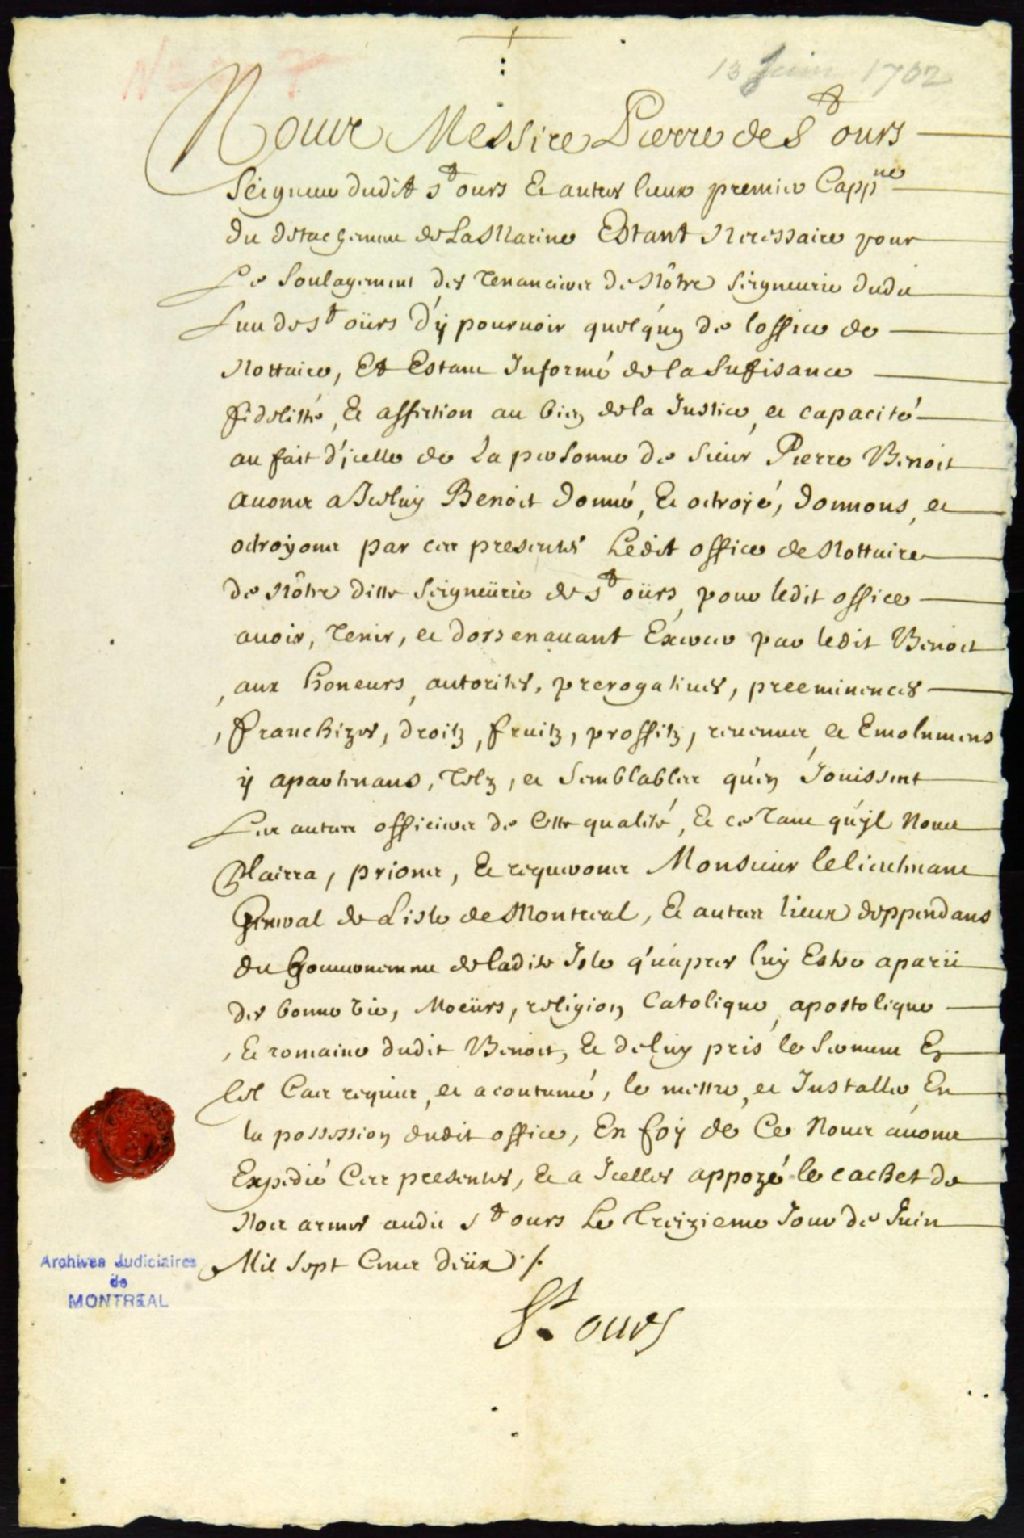 13 Juin 1702
Nous Messire Pierre de St ours
Seigneur dudit st ours Et autres lieux premier Cappne
du detachement de La Marine Estant Necessaire pour
Le Soulagement des Tenanciers de Nôtre Seigneurie dudit
Lieu de st oürs d'ÿ pourvoir quelqu'un de loffice de
Nottaire, Et Estant Informé de la Sufisance
fidelitté, Et affection au bien de la Justice, et capacité
au fait d'icelle de La personne de Sieur Pierre Benoit
avons a Iceluy Benoit donné, Et octroyé, donnons, et
octroÿons par ces presentes Ledit office de Nottaire
de Nôtre ditte Seigneürie de st oürs, pour ledit office
avoir, Tenir, et dorsenavant Exercer par ledit Benoit
, aux honeurs, autorites, prerogatives, preeminences
, franchizes, droitz, fruitz, proffitz, revenus, et Emolumens
ÿ apartenans, Telz, et Semblables qu'en Jouissent
Les autres officiers de Cette qualité, Et ce Tant qu'il Nous
Plairra, prions, Et requerons Monsieur le lieutenant
General de Lisle de Montreal, Et autres lieux deppendans
du Gouvernement de ladite Isle qu'aprés luy Estre aparü
des bonne vie, Moeürs, religion Catolique, apostolique
, Et romaine dudit Benoit, Et de luy pris le Serment En
tel Cas requis, et acoutumé, le mettre, et Installer En
la possession dudit office, En foÿ de Ce Nous avons
Expedié Ces presentes, Et a Icelles appozé le cachet de
Nos armes audit st ours Le Treizieme Jour de Juin
Mil Sept Cens deüx ./.
St. ours
Archives Judiciaires
de
MONTREAL